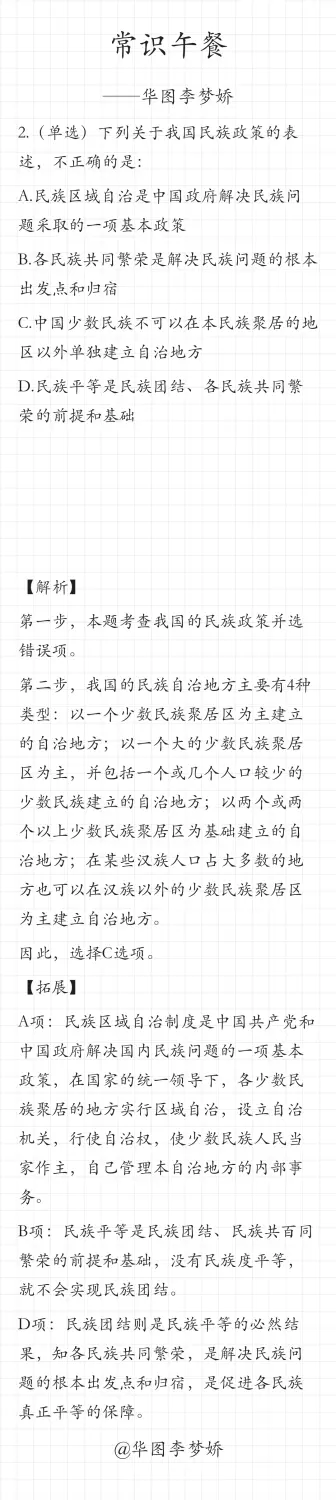 常识午餐
——华图李梦娇
2.（单选）下列关于我国民族政策的表
述，不正确的是：
A.民族区域自治是中国政府解决民族问
题采取的一项基本政策
B.各民族共同繁荣是解决民族问题的根本
出发点和归宿
C.中国少数民族不可以在本民族聚居的地
区以外单独建立自治地方
D.民族平等是民族团结、各民族共同繁
荣的前提和基础
【解析】
第一步，本题考查我国的民族政策并选
错误项。
第二步，我国的民族自治地方主要有4种
类型：以一个少数民族聚居区为主建立
的自治地方；以一个大的少数民族聚居
区为主，并包括一个或几个人口较少的
少数民族建立的自治地方；以两个或两
个以上少数民族聚居区为基础建立的自
治地方；在某些汉族人口占大多数的地
方也可以在汉族以外的少数民族聚居区
为主建立自治地方。
因此，选择C选项。
【拓展】
A项：民族区域自治制度是中国共产党和
中国政府解决国内民族问题的一项基本
政策，在国家的统一领导下，各少数民
族聚居的地方实行区域自治，设立自治
机关，行使自治权，使少数民族人民当
家作主，自己管理本自治地方的内部事
务。
B项：民族平等是民族团结、民族共百同
繁荣的前提和基础，没有民族度平等，
就不会实现民族团结。
D项：民族团结则是民族平等的必然结
果，知各民族共同繁荣，是解决民族问
题的根本出发点和归宿，是促进各民族
真正平等的保障。
@华图李梦娇